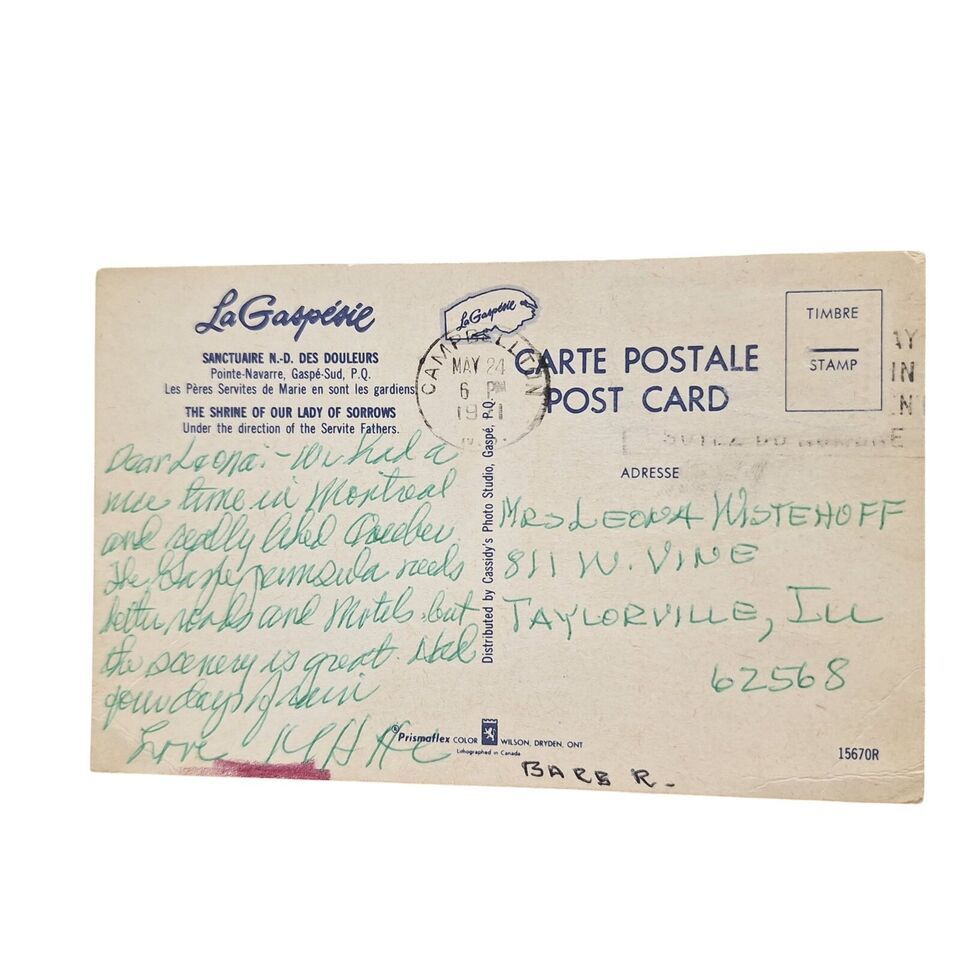 La Gaspésie
SANCTUAIRE N.-D. DES DOULEURS
Pointe-Navarre, Gaspé-Sud, P.Q.
Les Pères Servites de Marie en sont les gardiens.
THE SHRINE OF OUR LADY OF SORROWS
Under the direction of the Servite Fathers.
Dear Leona:- We had a
nice time in Montreal
and really liked Quebec.
The Gaspe peninsula needs
better roads and Motels but
the scenery is great. Had
four days of rain
Love
La Gaspésie
CAMPBELLTON
MAY 24
6 PM
Distributed by Cassidy's Photo Studio, Gaspé, P.Q.
CARTE POSTALE
POST CARD
TIMBRE
STAMP
ADRESSE
MRS LEONA WISTEHOFF
811 W. VINE
TAYLORVILLE, ILL
62568
Prismaflex COLOR WILSON, DRYDEN, ONT
Lithographed in Canada
BARB R.
15670R